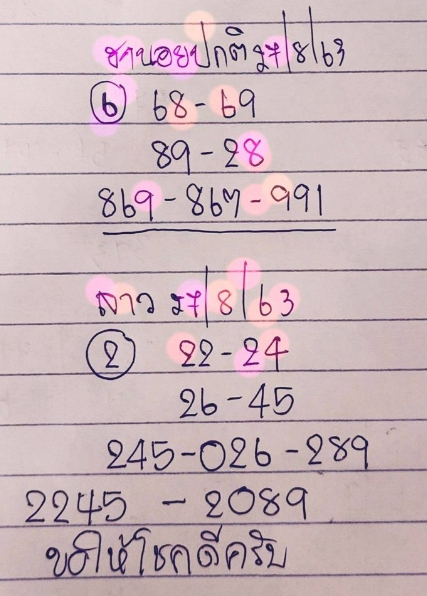 ฮานอยปกติ 27/8/63
6 68-69
89-28
869-867-991
ลาว 27/8/63
2 22-24
26-45
245-026-289
2245 - 2089
ขอให้โชคดีครับ